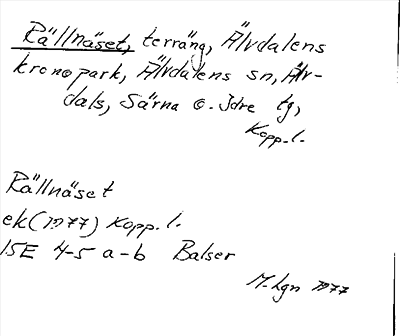 Rällnäset, terräng, Älvdalens
kronopark, Älvdalens sn, Älv-
dals, Särna o. Idre tg,
Kopp.l.
Rällnäset
ek (1977) Kopp.l.
15E 4-5 a-b Balser
M.Lgn 1977